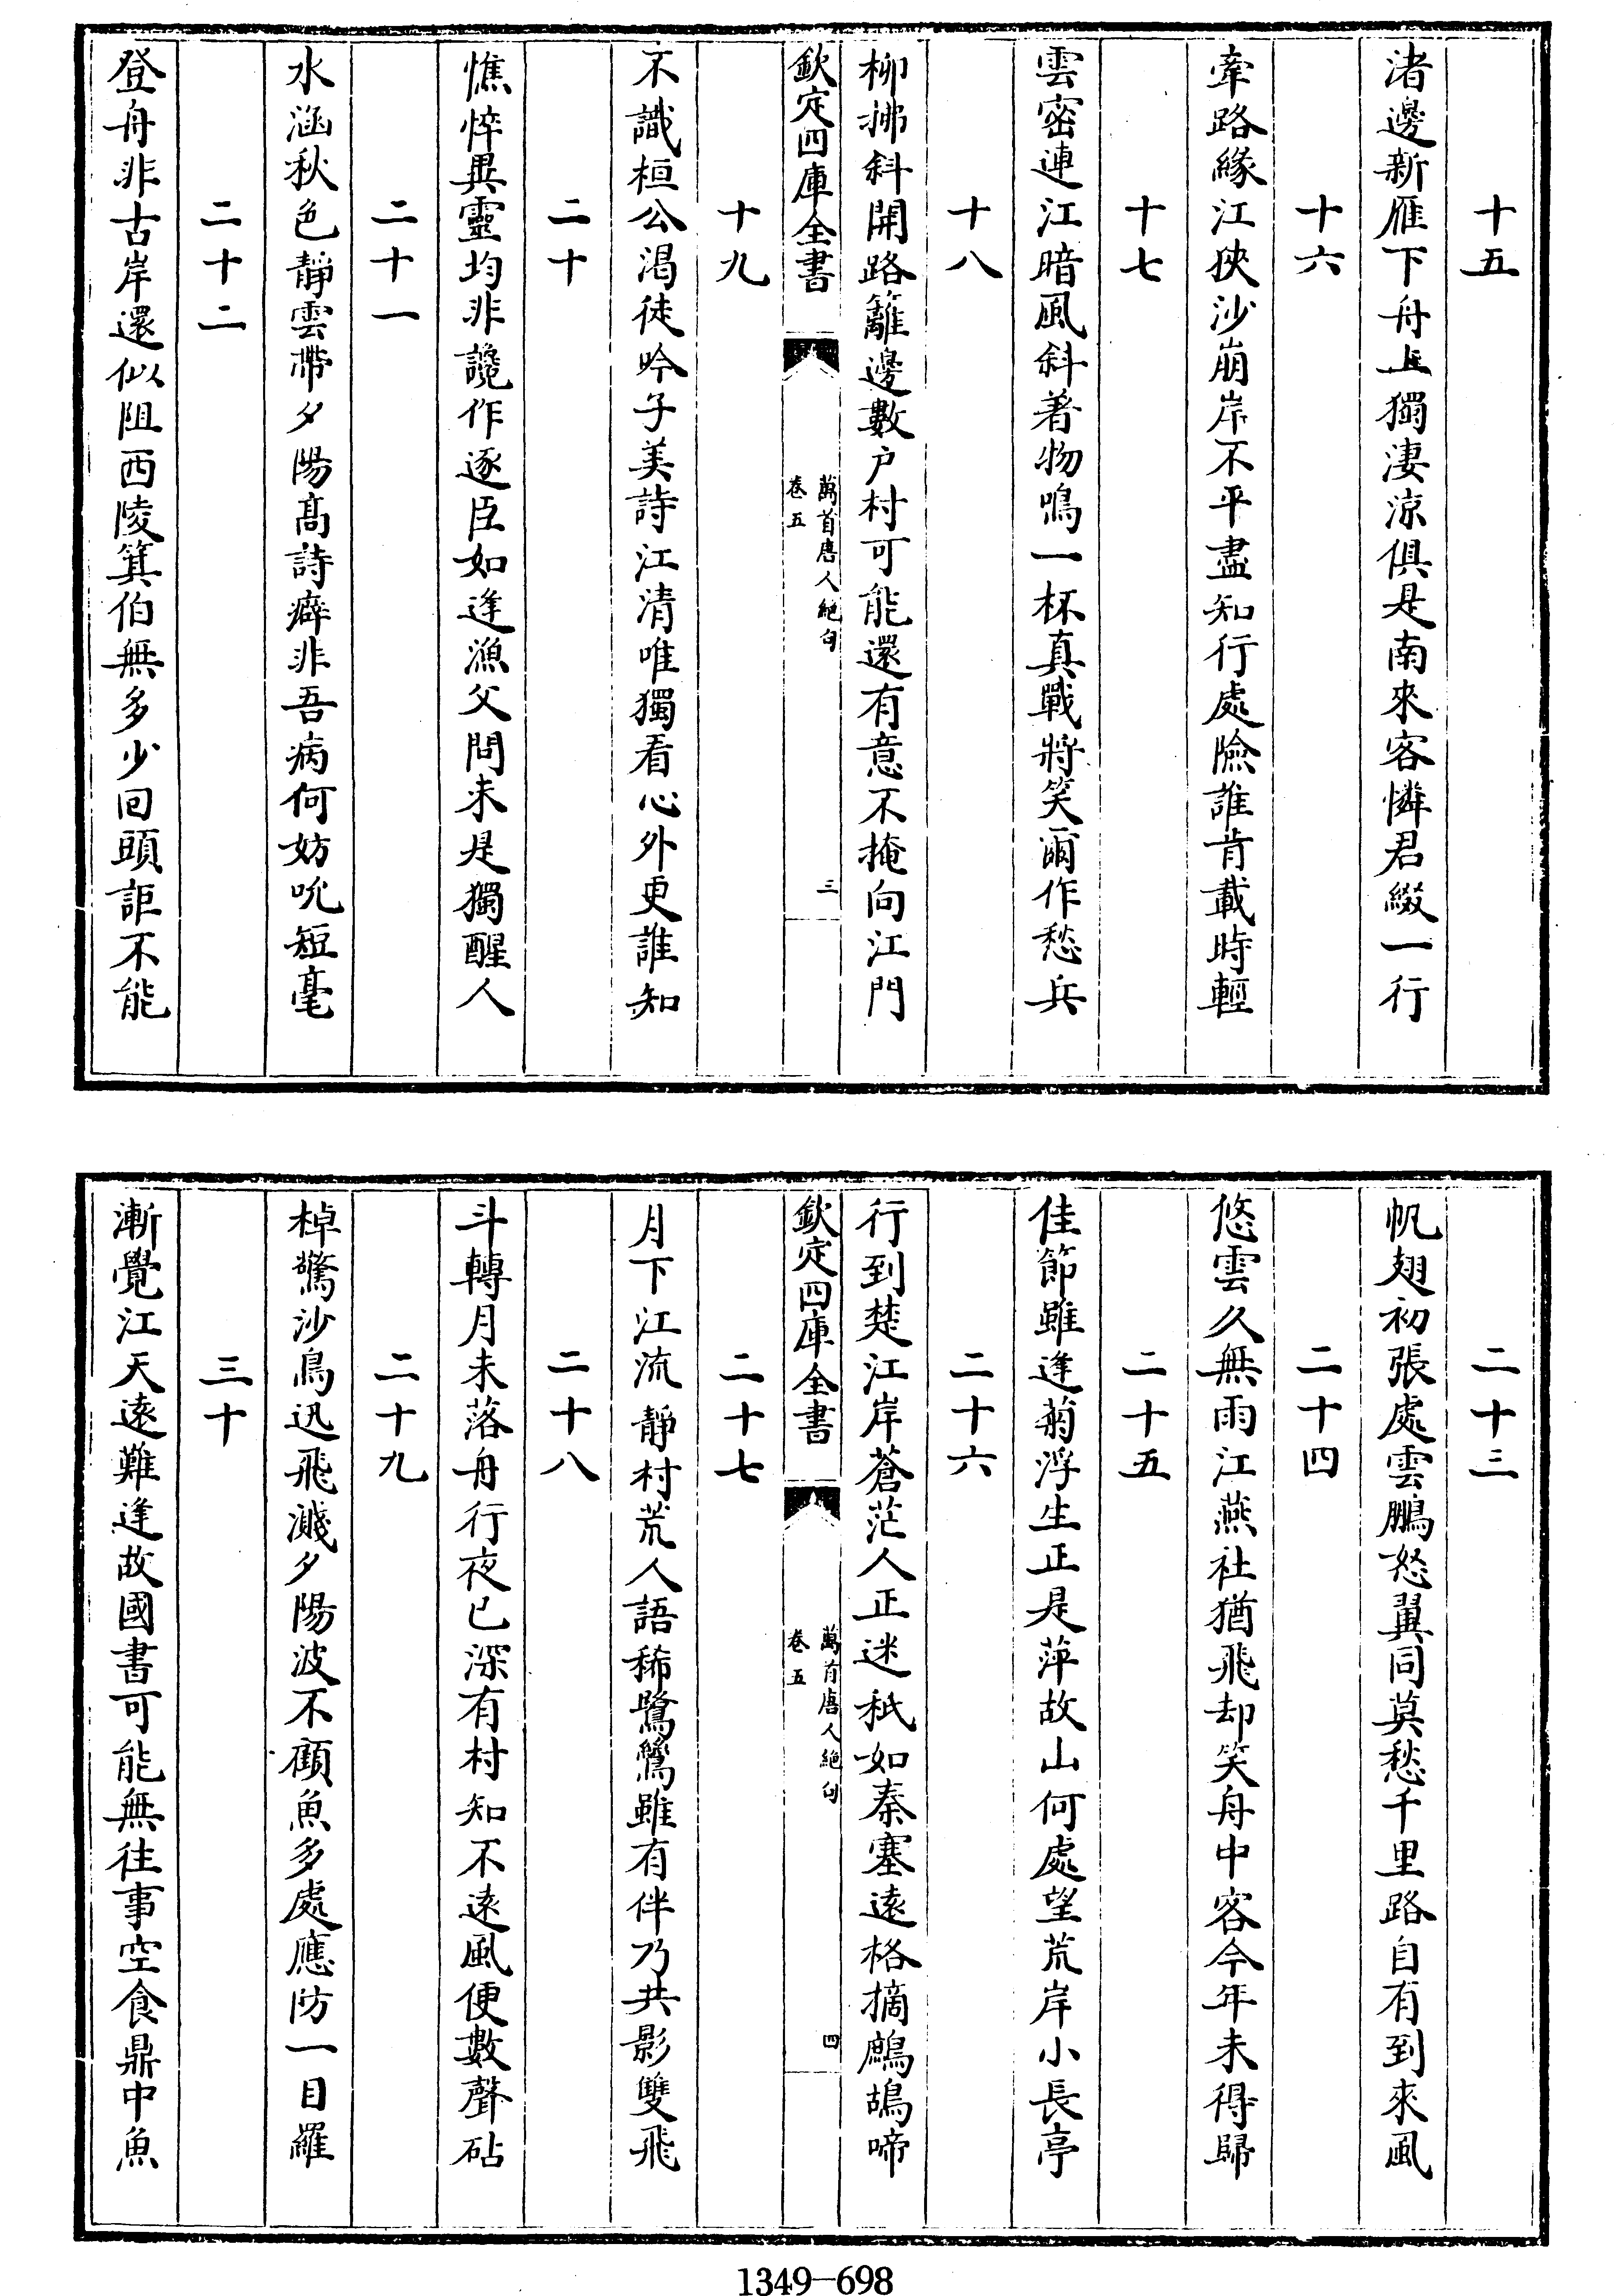 十五
渚邊新雁下舟上獨淒涼俱是南來客憐君綴一行
十六
牽路緣江狹沙崩岸不平盡知行處險誰肯載時輕
十七
雲密連江暗風斜著物鳴一杯真戰將笑爾作愁兵
十八
柳拂斜開路籬邊數户村可能還有意不掩向江門
欽定四庫全書
萬首唐人絶句
卷五
三
十九
不識桓公渴徒吟子美詩江清唯獨看心外更誰知
二十
憔悴異靈均非讒作逐臣如逢漁父問未是獨醒人
二十一
水涵秋色靜雲帶夕陽髙詩癖非吾病何妨吮短毫
二十二
登舟非古岸還似阻西陵箕伯無多少回頭詎不能
二十三
帆翅初張處雲鵬怒翼同莫愁千里路自有到來風
二十四
悠雲久無雨江燕社猶飛却笑舟中客今年未得歸
二十五
佳節雖逢菊浮生正是萍故山何處望荒岸小長亭
二十六
行到楚江岸蒼茫人正迷秖如秦塞遠格摘鷓鴣啼
欽定四庫全書
萬首唐人絶句
卷五
四
二十七
月下江流靜村荒人語稀鷺鷥雖有伴乃共影雙飛
二十八
斗轉月未落舟行夜已深有村知不遠風便數聲砧
二十九
棹驚沙鳥迅飛濺夕陽波不顧魚多處應防一目羅
三十
漸覺江天遠難逢故國書可能無往事空食鼎中魚
1349—698